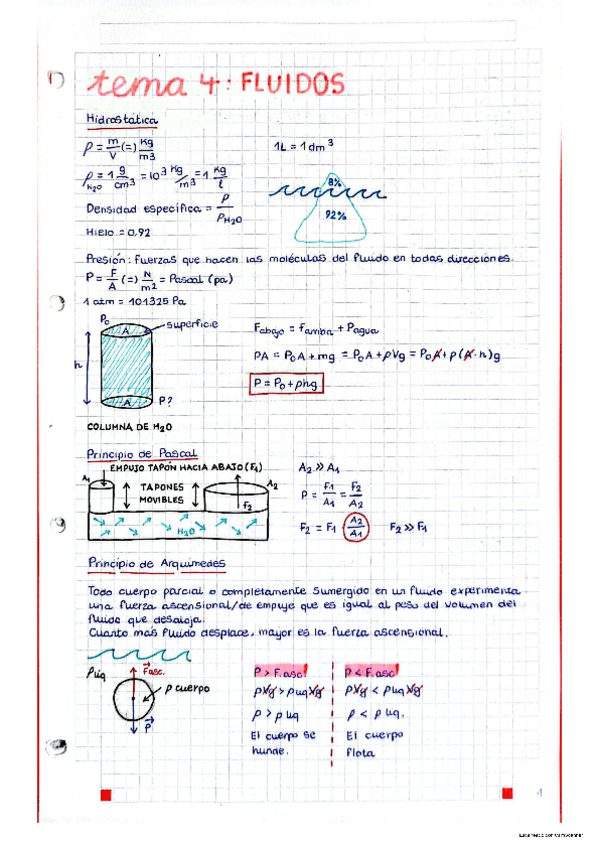 tema 4: FLUIDOS
Hidrostática
ρ = m/V (=) kg/m3
1L = 1dm³
ρH2O = 1 g/cm³ = 10³ kg/m³ = 1 kg/l
8%
92%
Densidad específica = ρ/ρH2O
Hielo = 0,92
Presión: Fuerzas que hacen las moléculas del fluido en todas direcciones.
P = F/A (=) N/m2 = Pascal (pa)
1 atm = 101325 Pa
P0
A
superficie
Fabajo = farriba + Pagua
h
PA = P0A + mg = P0A + ρVg = P0A + ρ(A·h)g
P = P0 + ρhg
A
P?
COLUMNA DE H2O
Principio de Pascal
EMPUJO TAPÓN HACIA ABAJO (F1)
A2 >> A1
A1
TAPONES MOVIBLES
A2
P = F1/A1 = F2/A2
F2
H2O
F2 = F1 · A2/A1
F2 >> F1
Principio de Arquímedes
Todo cuerpo parcial o completamente sumergido en un fluido experimenta
una fuerza ascensional/de empuje que es igual al peso del volumen del
fluido que desaloja.
Cuanto más fluido desplace, mayor es la fuerza ascensional.
ρliq
Fasc.
ρ cuerpo
P
P > F.asc
P < F.asc
ρVg > ρliqVg
ρVg < ρliqVg
ρ > ρliq
ρ < ρliq.
El cuerpo se
El cuerpo
hunde.
flota
1